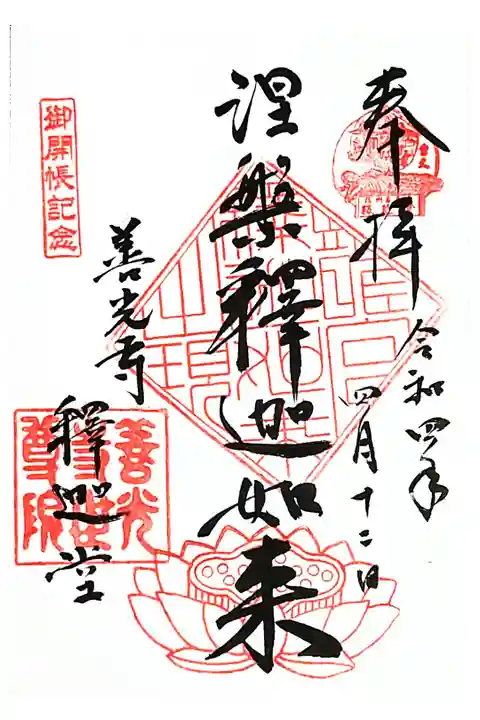 奉拝
令和四年
四月十二日
涅槃釋迦如来
善光寺
釋迦堂
御開帳記念
善光
世
尊院